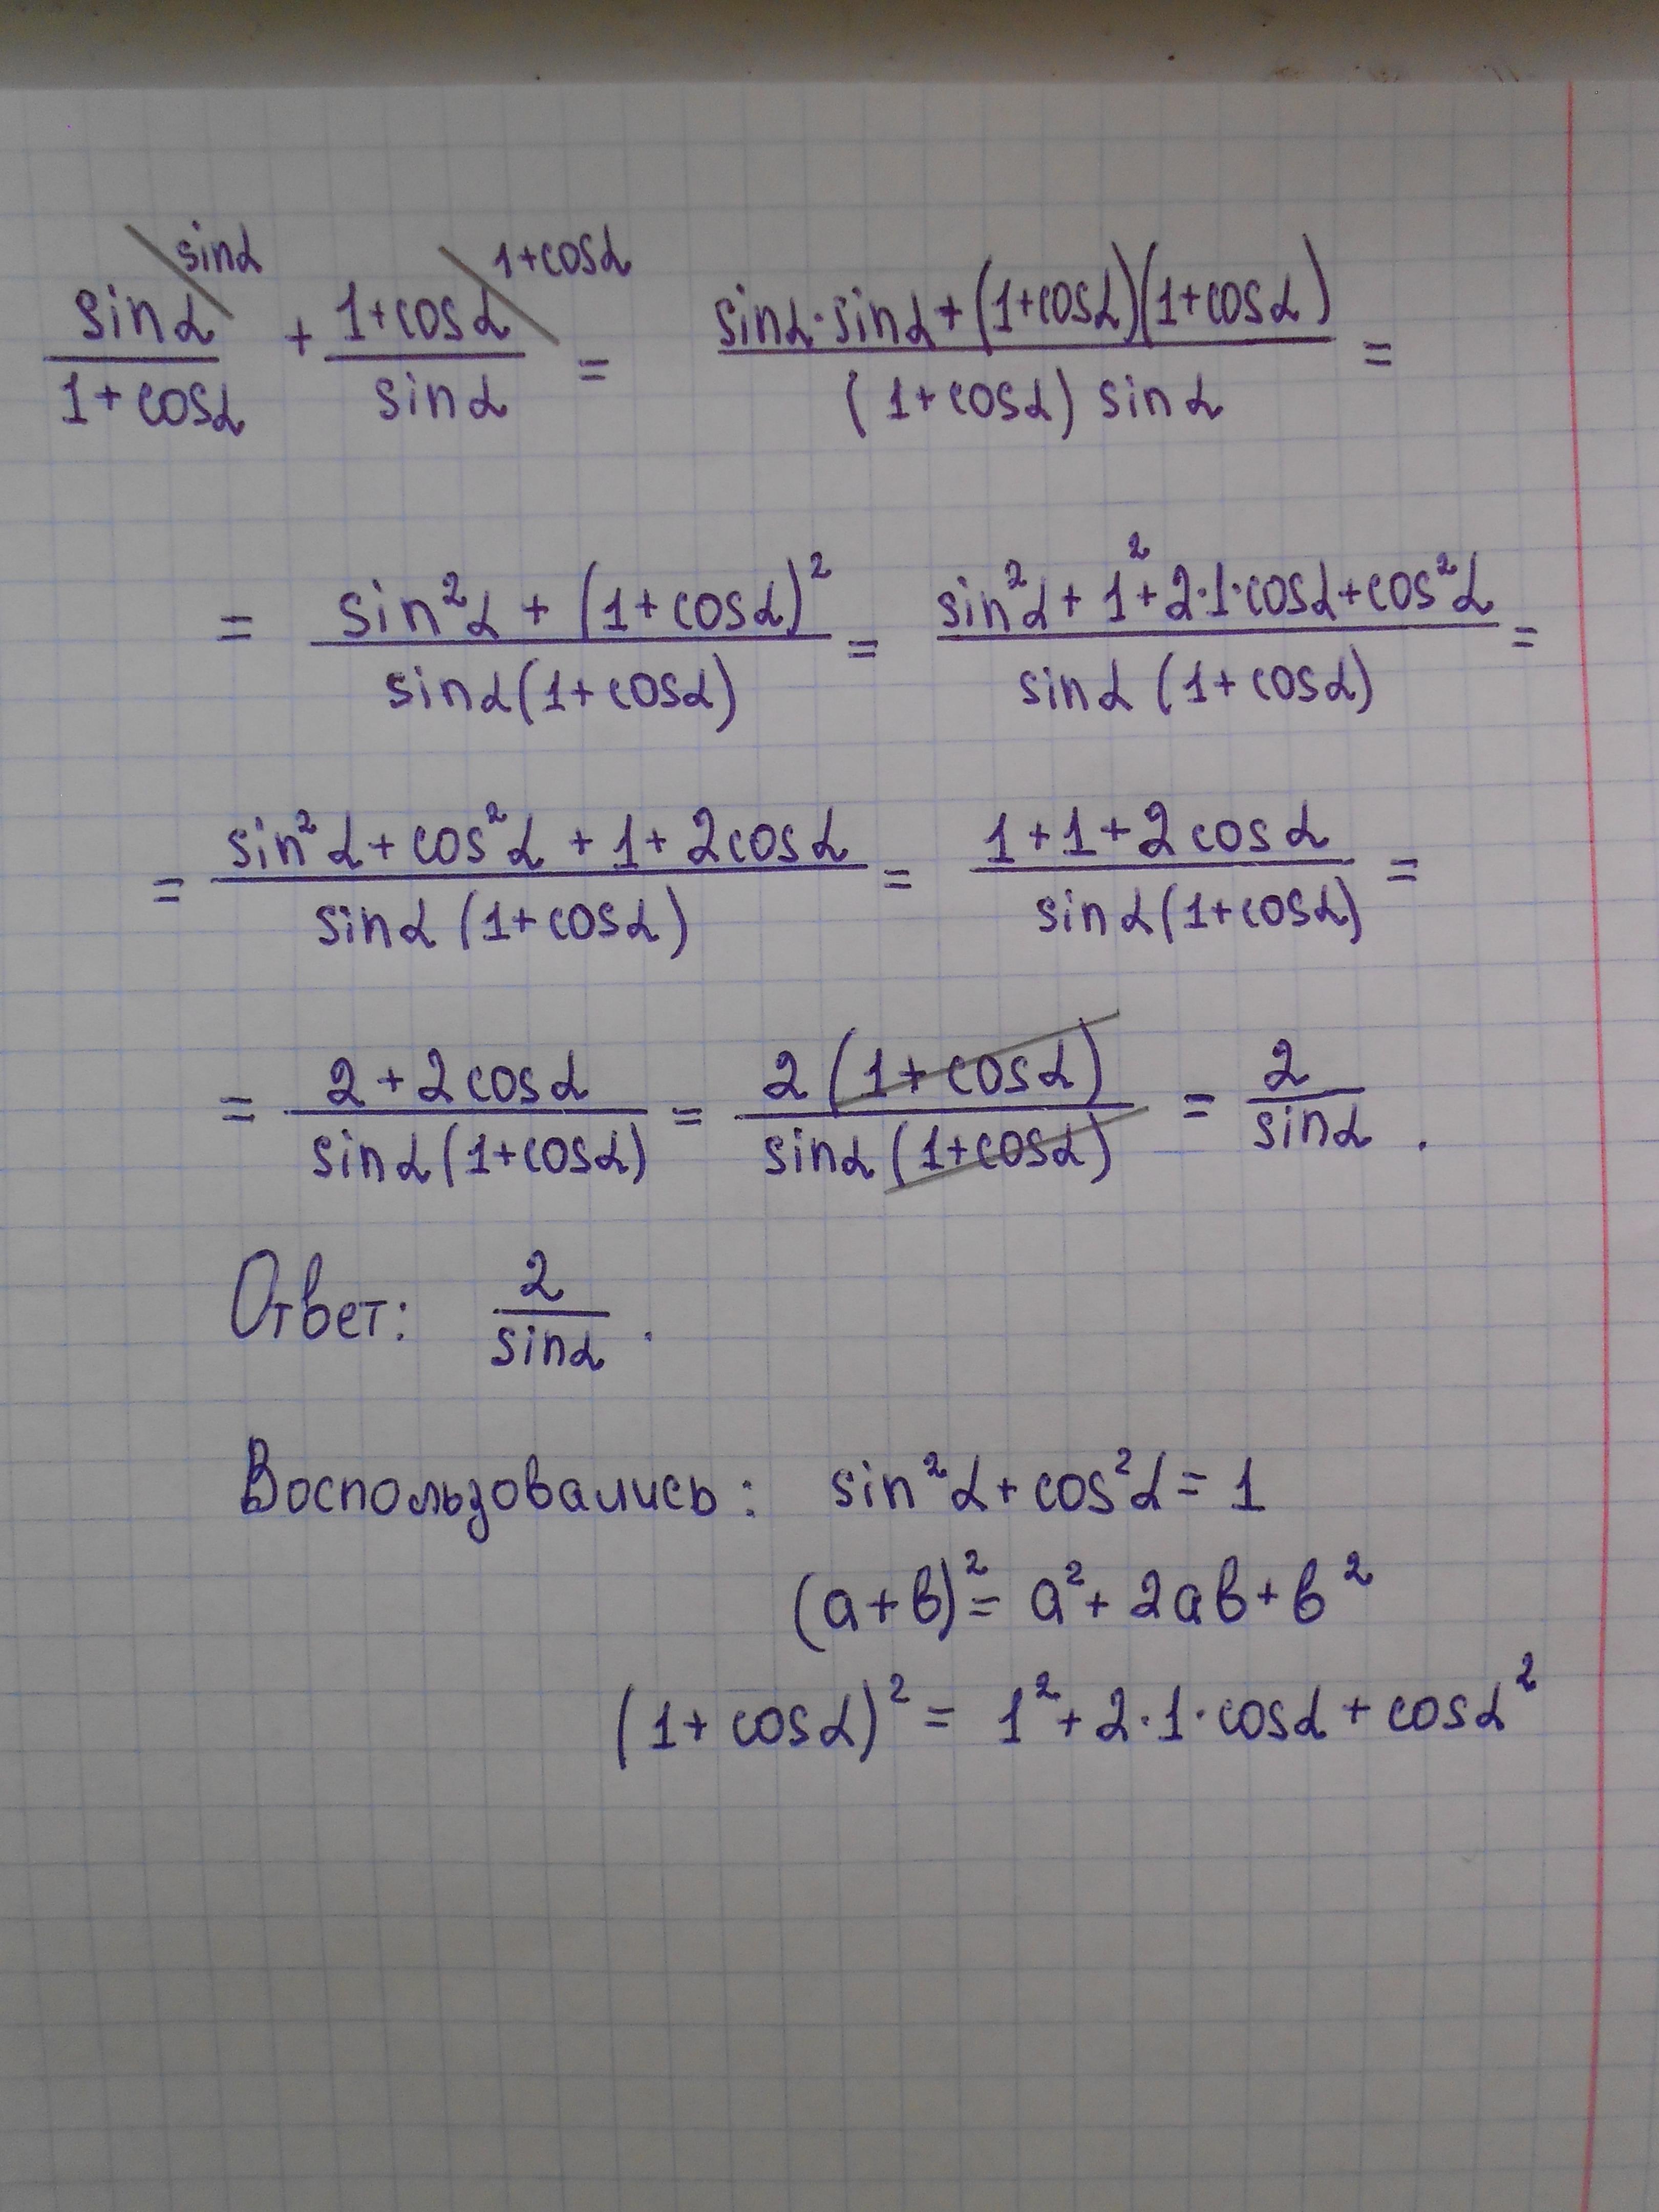 sinα/(1+cosα) ^sinα + (1+cosα)/sinα ^1+cosα = (sinα·sinα+(1+cosα)(1+cosα))/((1+cosα) sinα) =
= (sin²α + (1+cosα)²)/(sinα(1+cosα)) = (sin²α + 1² + 2·1·cosα + cos²α)/(sinα (1+cosα)) =
= (sin²α + cos²α + 1 + 2cosα)/(sinα (1+cosα)) = (1+1+2cosα)/(sinα(1+cosα)) =
= (2+2cosα)/(sinα(1+cosα)) = (2(1+cosα))/(sinα(1+cosα)) = 2/sinα .
Ответ: 2/sinα .
Воспользовались: sin²α + cos²α = 1
(a+b)² = a² + 2ab + b²
(1+cosα)² = 1² + 2·1·cosα + cosα²